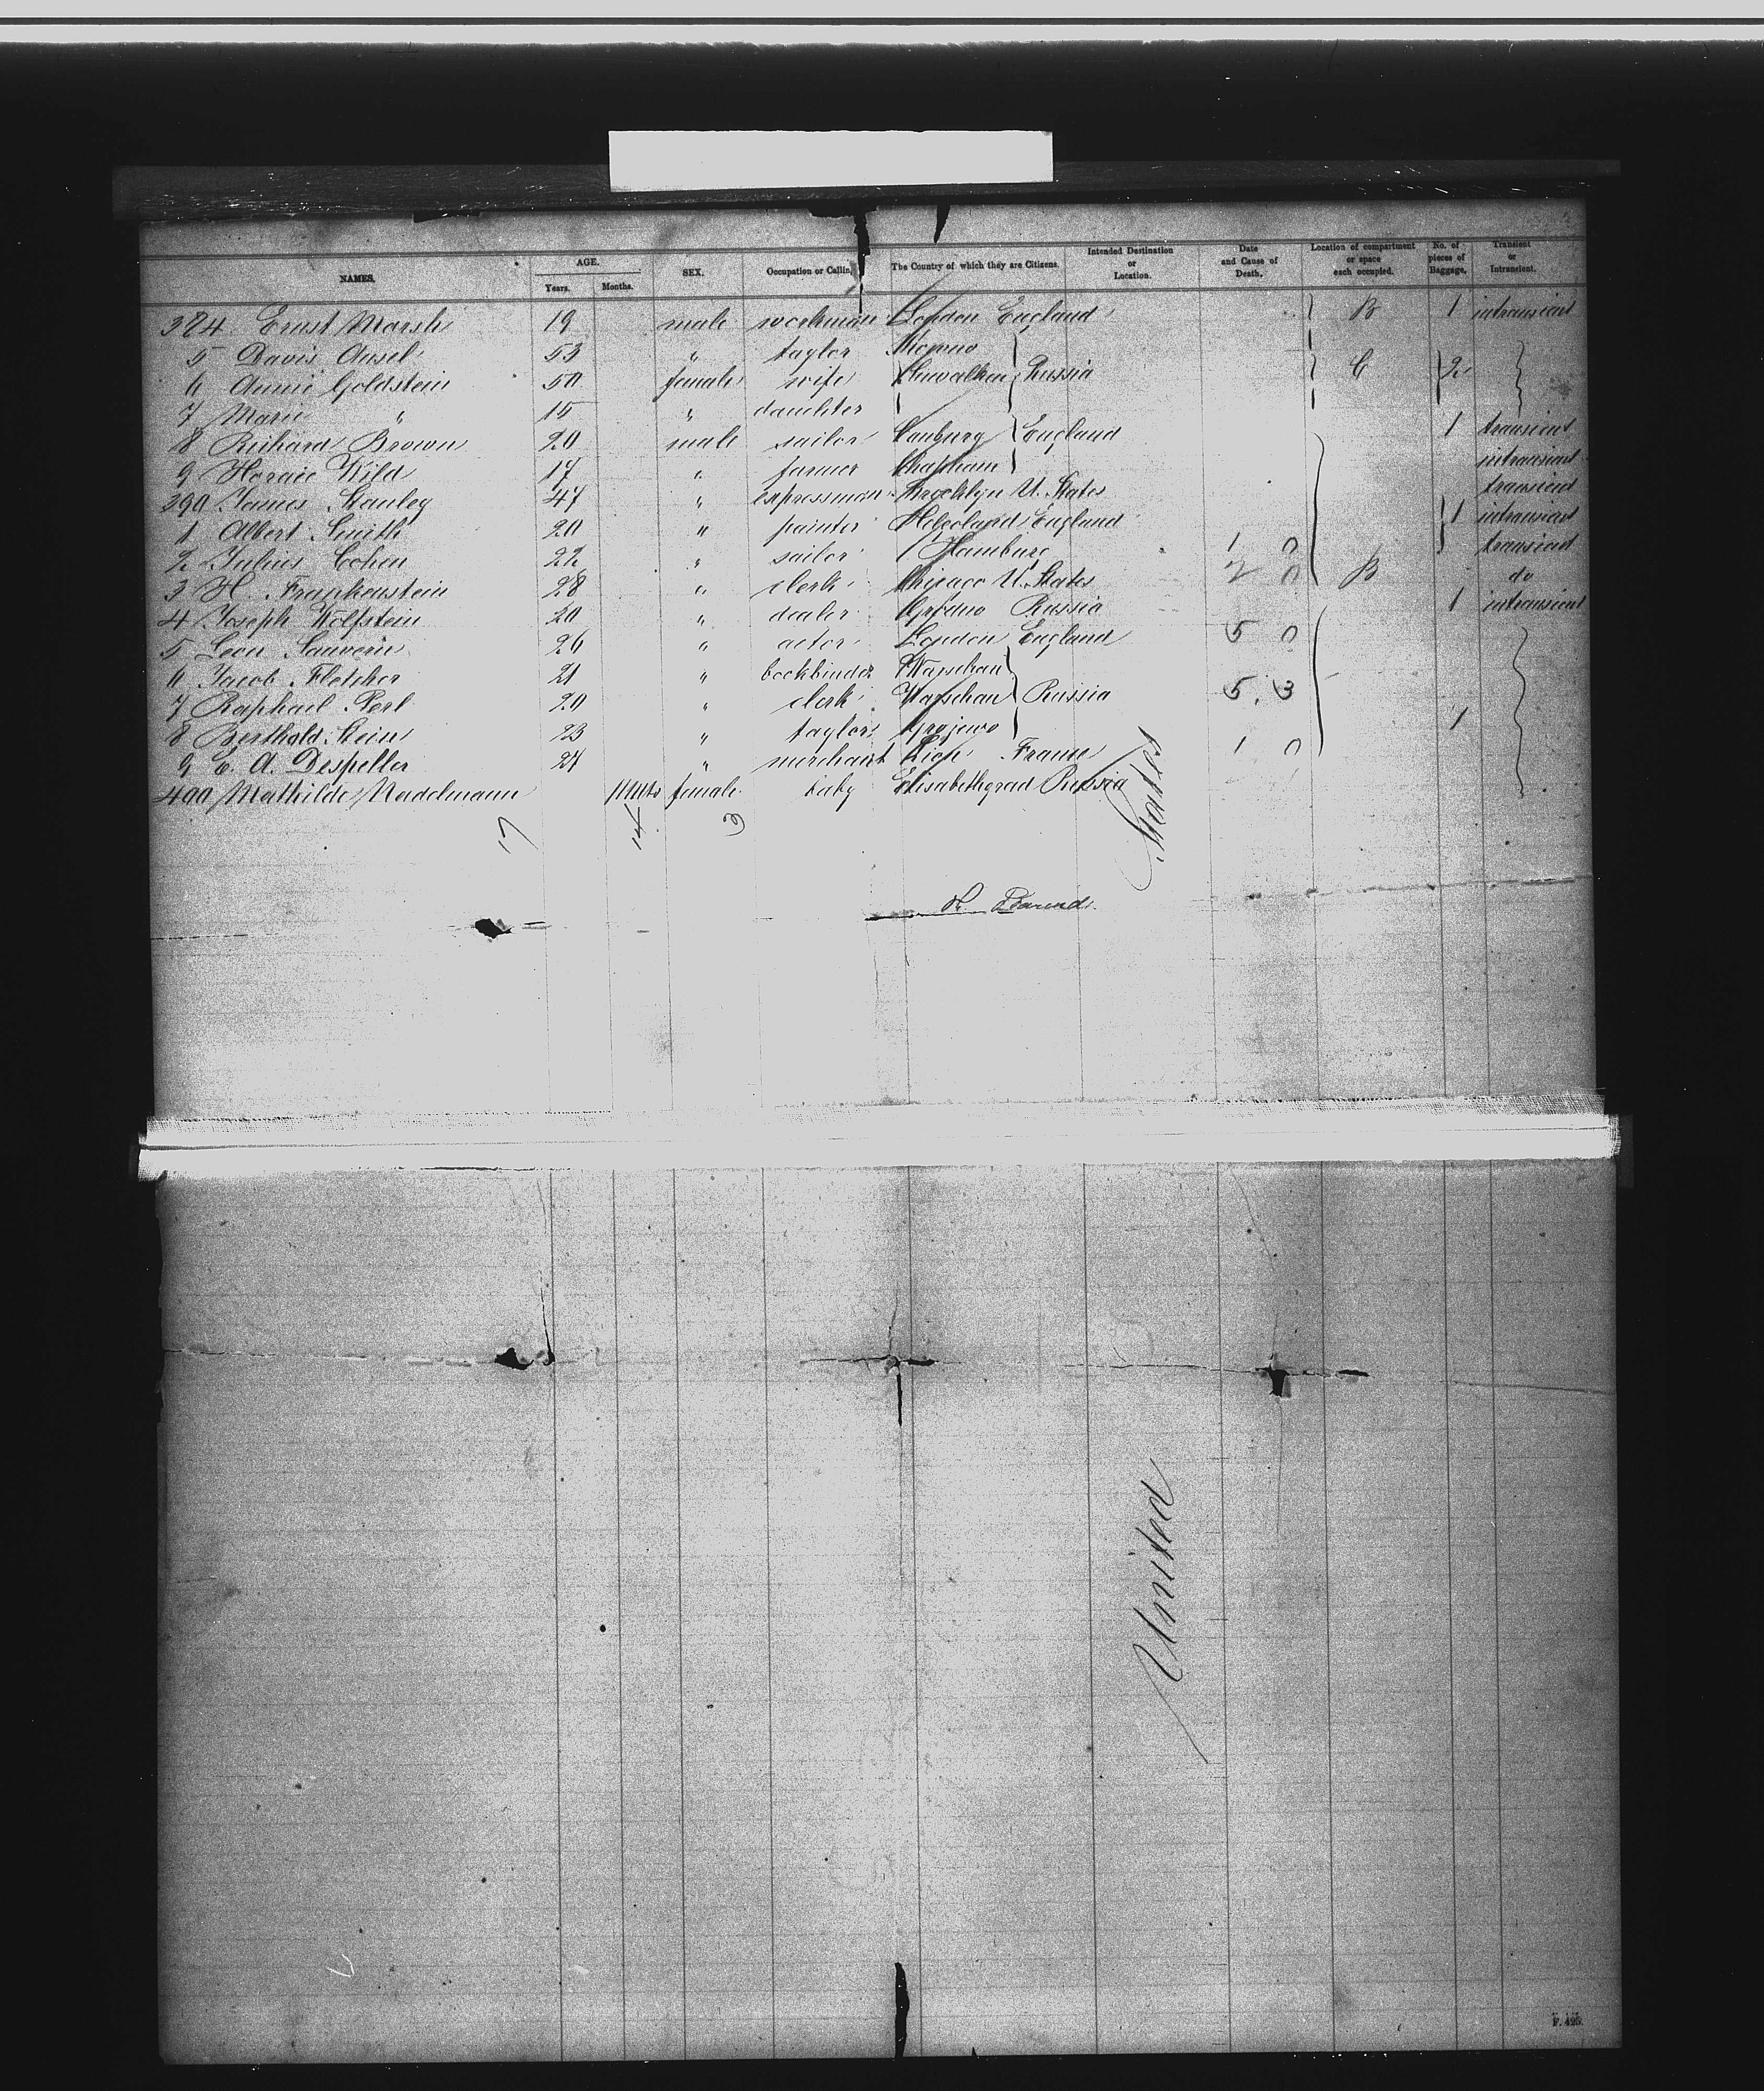 NAMES. AGE. Years. Months. SEX. Occupation or Callin. The Country of which they are Citizens. Intended Destination or Location. Date and Cause of Death. Location of compartment or space each occupied. No. of pieces of Baggage. Transient or Intransient.
384 Ernst Marsh 19 male workman London England B 1 intransient
5 Davis Ansel 53 " taylor
6 Annie Goldstein 50 female wife Russia C 2
7 Marie " 15 " daughter
8 Richard Brown 20 male sailor England 1 transient
9 Horaic Wild 17 " farmer Chapham intransient
390 James Stanley 47 " expressman Brooklyn U. States transient
1 Albert Smith 20 " painter Helgoland England 1 intransient
2 Julius Cohen 22 " sailor Hamburg 1 0 transient
3 H. Frankenstein 28 " clerk Chicago U. States 2 0 B do
4 Joseph Wolfstein 20 " dealer Grodno Russia 1 intransient
5 Leon Sauverin 26 " actor London England 5 0
6 Jacob Fletcher 21 " bookbinder Warschau
7 Raphael Perl 20 " clerk Warschau Russia 5. 3
8 Berthold Stein 23 " taylor Grajewo 1
9 E. A. Despeller 21 " merchant France 1 0
400 Mathilde Nadelmann 11 Mts female baby Elisabethgrad Russia
17 14 3
States
United
F. 425.